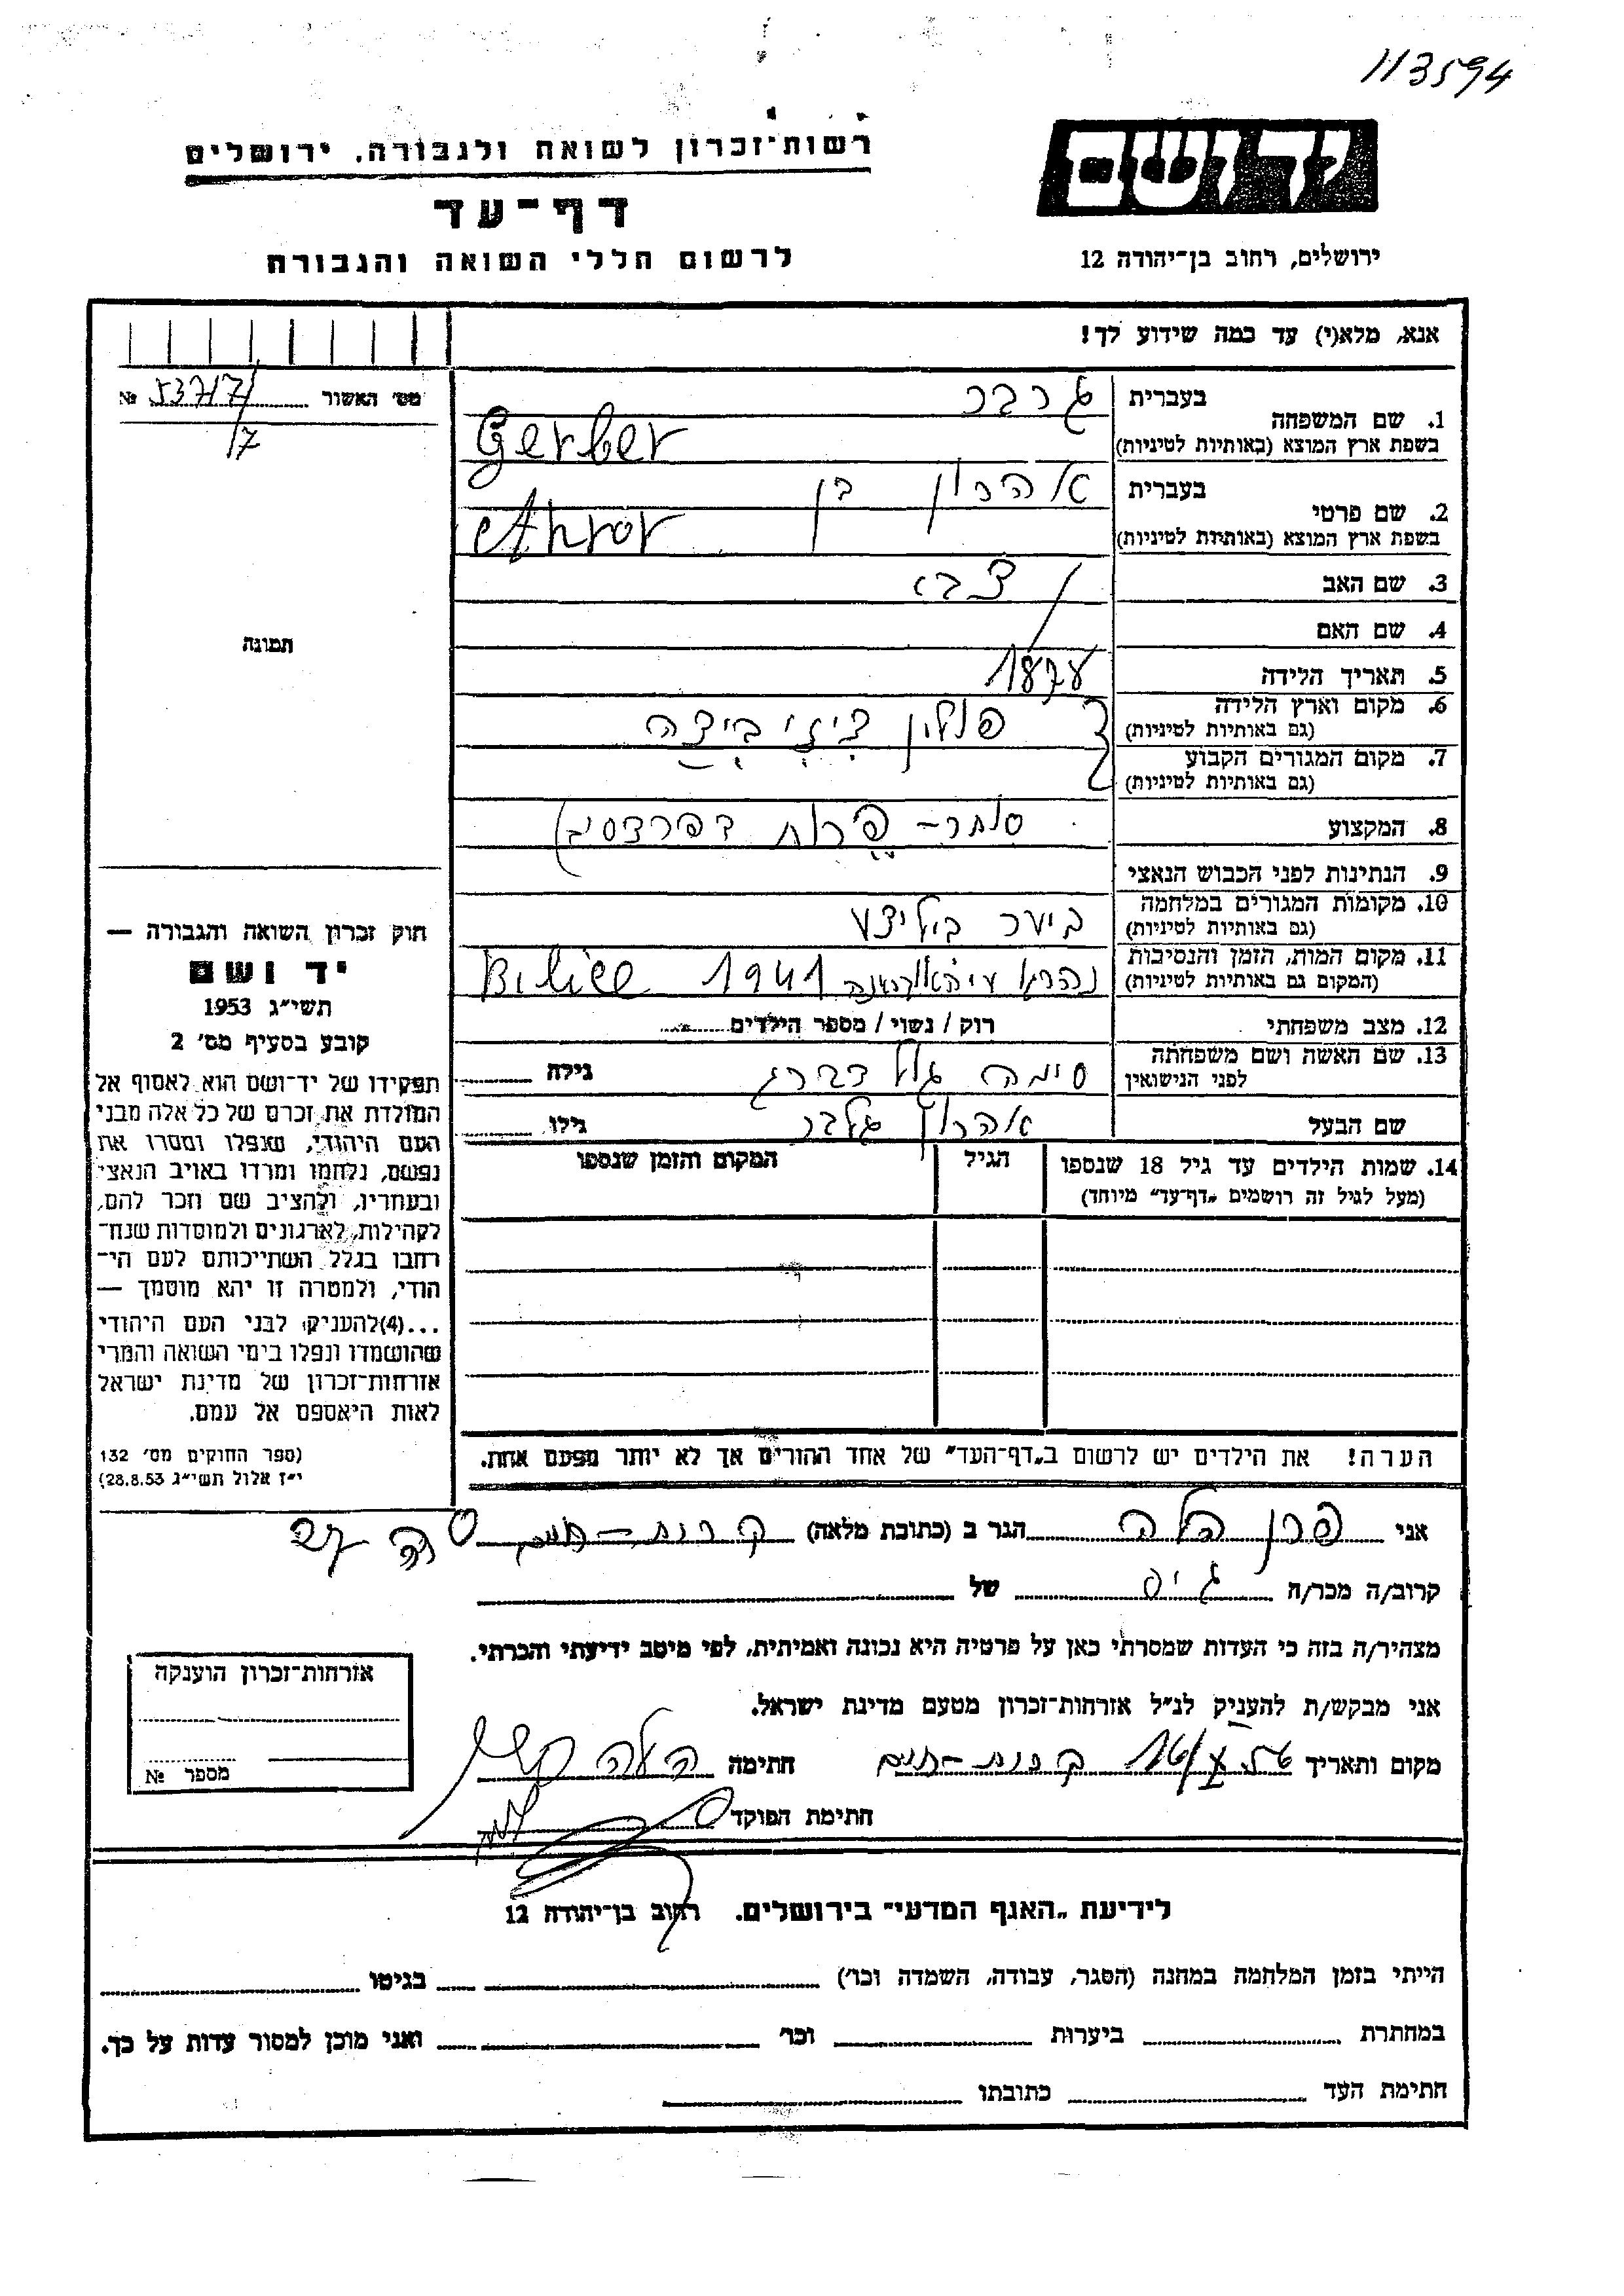 113594
יד ושם
ירושלים, רחוב בן־יהודה 12
רשות־זכרון לשואה ולגבורה, ירושלים
דף־עד
לרשום חללי השואה והגבורה
אנא, מלא(י) עד כמה שידוע לך!
מס׳ האשור № 53717/
17
תמונה
1. שם המשפחה בעברית גרבר
בשפת ארץ המוצא (באותיות לטיניות) Gerber
2. שם פרטי בעברית אהרון בן
בשפת ארץ המוצא (באותיות לטיניות) Ahron
3. שם האב צבי
4. שם האם
5. תאריך הלידה 1878
6. מקום וארץ הלידה פולין
(גם באותיות לטיניות)
7. מקום המגורים הקבוע
(גם באותיות לטיניות)
8. המקצוע סוחר־
9. הנתינות לפני הכבוש הנאצי
10. מקומות המגורים במלחמה ביער
(גם באותיות לטיניות)
11. מקום המות, הזמן והנסיבות נהרג 1941
(המקום גם באותיות לטיניות)
12. מצב משפחתי רוק / נשוי / מספר הילדים
13. שם האשה ושם משפחתה סימה גולדברג גילה
לפני הנישואין
שם הבעל אהרון גילו
14. שמות הילדים עד גיל 18 שנספו הגיל המקום והזמן שנספו
(מעל לגיל זה רושמים „דף־עד״ מיוחד)
הערה! את הילדים יש לרשום ב„דף־העד״ של אחד ההורים אך לא יותר מפעם אחת.
חוק זכרון השואה והגבורה —
יד ושם
תשי״ג 1953
קובע בסעיף מס׳ 2
תפקידו של יד־ושם הוא לאסוף אל
המולדת את זכרם של כל אלה מבני
העם היהודי, שנפלו ומסרו את
נפשם, נלחמו ומרדו באויב הנאצי
ובעוזריו, ולהציב שם וזכר להם,
לקהילות, לארגונים ולמוסדות שנח־
רבו בגלל השתייכותם לעם הי־
הודי, ולמטרה זו יהא מוסמך —
...(4)להעניק לבני העם היהודי
שהושמדו ונפלו בימי השואה והמרי
אזרחות־זכרון של מדינת ישראל
לאות היאספם אל עמם.
(ספר החוקים מס׳ 132
י״ז אלול תשי״ג 28.8.53)
אני הלה הגר ב (כתובת מלאה) קרית־חיים
קרוב/ה מכר/ה גיס של
מצהיר/ה בזה כי העדות שמסרתי כאן על פרטיה היא נכונה ואמיתית, לפי מיטב ידיעתי והכרתי.
אני מבקש/ת להעניק לנ״ל אזרחות־זכרון מטעם מדינת ישראל.
מקום ותאריך קרית־חיים חתימה
חתימת הפוקד
אזרחות־זכרון הוענקה
מספר №
לידיעת „האגף המדעי״ בירושלים. רחוב בן־יהודה 12
הייתי בזמן המלחמה במחנה (הסגר, עבודה, השמדה וכו׳) בגיטו
במחתרת ביערות וכו׳ ואני מוכן למסור עדות על כך.
חתימת העד כתובתו